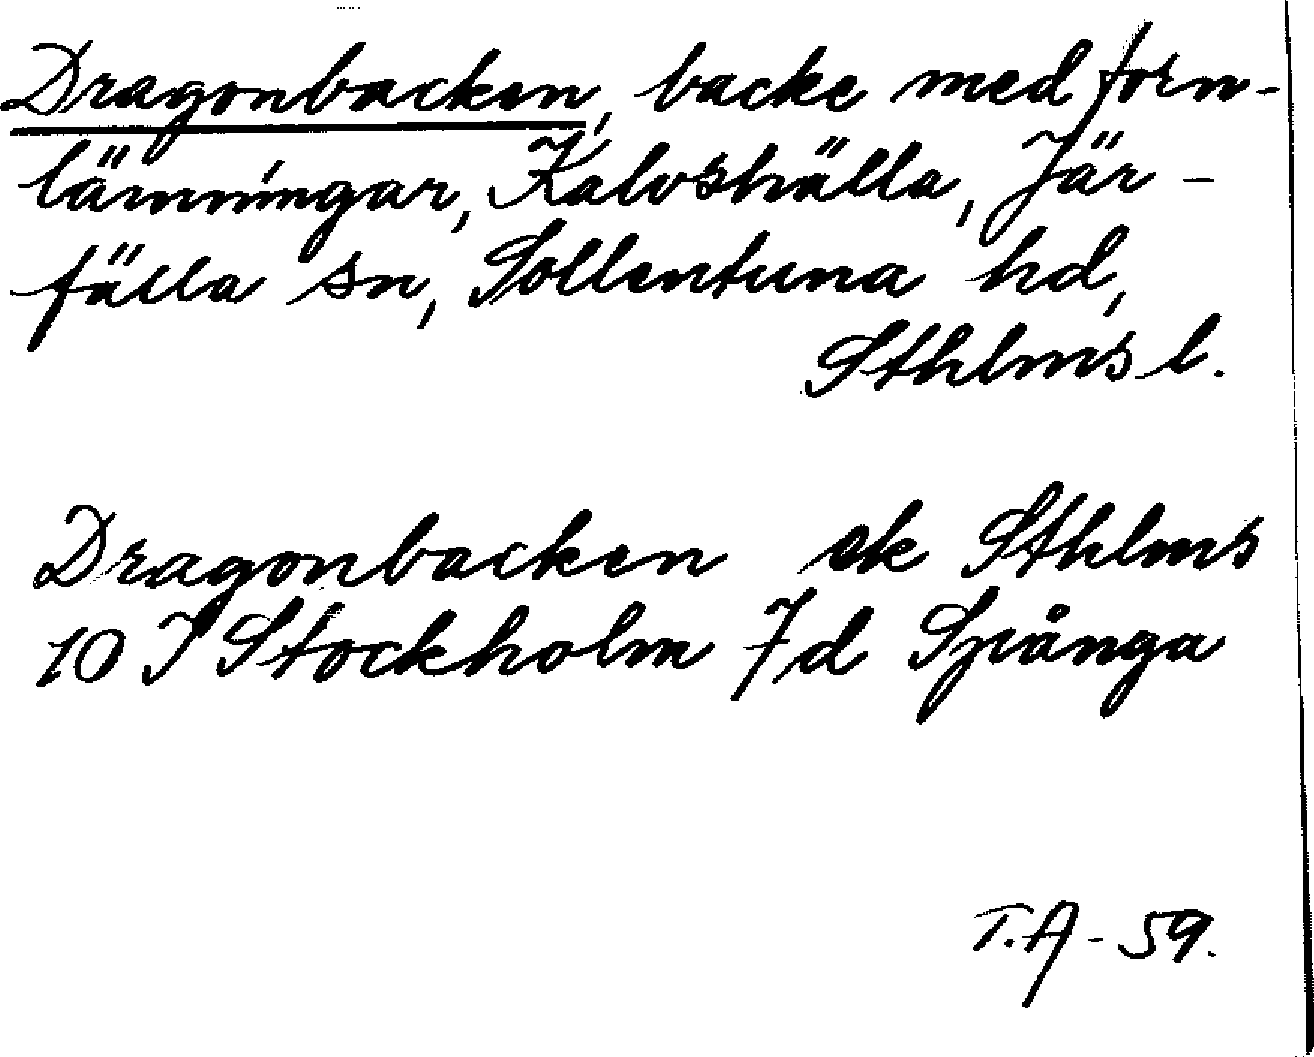 Dragonbacken, backe med forn-
lämningar, Kalvshälla, Jär-
fälla sn, Sollentuna hd,
Sthlms l.
Dragonbacken ek Sthlms
10 I Stockholm 7d Spånga
T.A - 59.